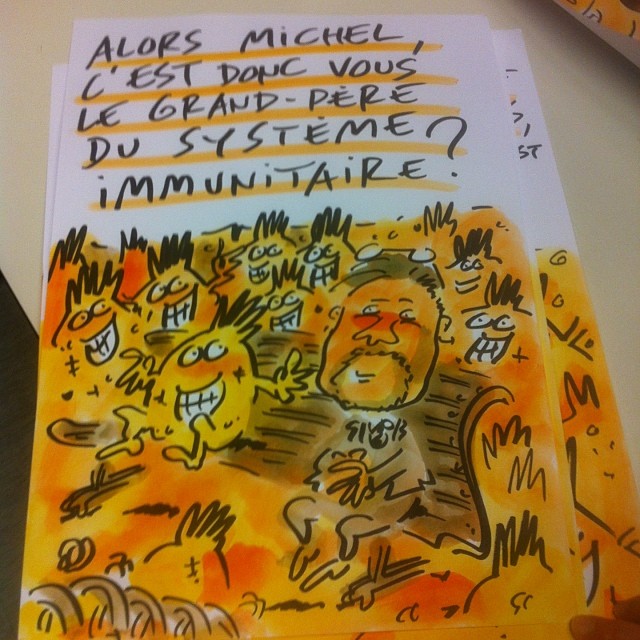 ALORS MICHEL,
C'EST DONC VOUS
LE GRAND-PÈRE
DU SYSTÈME
IMMUNITAIRE ?
ST